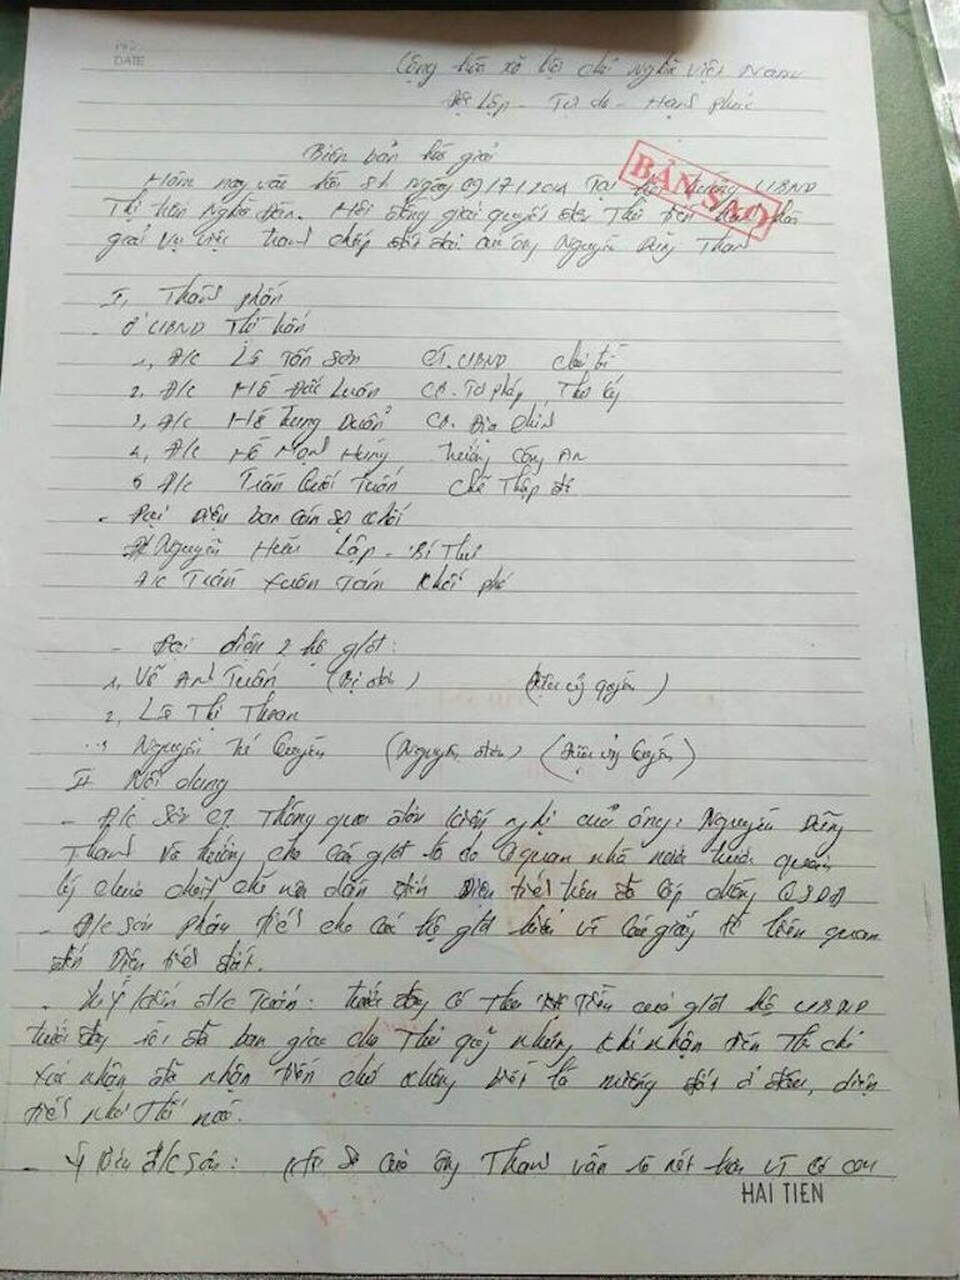 NO.
DATE
Cộng hòa xã hội chủ nghĩa Việt Nam
Độc lập - Tự do - Hạnh phúc
Biên bản hòa giải
BẢN SAO
Hôm nay vào hồi 8h ngày 09/7/2014 Tại hội trường UBND
Thị trấn Nghĩa Đàn. Hội đồng giải quyết đơn Thư tiến hành hòa
giải vụ việc tranh chấp đất đai của ông Nguyễn Dũng Thanh
I, Thành phần
- Ở UBND Thị trấn
1, Đ/c Lê Tấn Sơn CT. UBND Chủ trì
2, Đ/c Hồ Đức Luân CB. Tư pháp, Thư ký
3, Đ/c Hồ Trung Duẩn CB. Địa chính
4, Đ/c Hồ Mạnh Hùng Trưởng Công An
5 Đ/c Trần Quốc Tuấn Chữ Thập đỏ
- Đại diện ban cán sự khối
Nguyễn Hữu Lập - Bí Thư
Đ/c Trần Xuân Tám Khối phó
- Đại diện 2 hộ g/đt:
1, Võ Anh Tuấn (Bị đơn) (Diện uỷ quyền)
2, Lê Thị Thoan
Nguyễn Thế Quyền (Nguyên đơn) (Diện uỷ Quyền)
II Nội dung
- Đ/c Sơn CT Thông qua đơn kiến nghị của ông: Nguyễn Dũng
Thanh và hướng cho các g/đt là do cơ quan nhà nước trước quản
lý chưa chặt chẽ nên dẫn đến Diện tiết trên đã cấp chồng QSDĐ
- Đ/c Sơn phân tiết cho các hộ g/đt hiểu về các giấy tờ liên quan
đến Diện tiết đất.
- Ý kiến đ/c Tuấn. trước đây có thu tiền của g/đt hộ UBND
trước đây rồi đã bàn giao cho Thủ quỹ nhưng khi nhận tiền thì chỉ
xác nhận đã nhận tiền chứ không biết là vướng đất ở đâu, diện
tiết như thế nào.
- Ý kiến đ/c Sơn: Hồ sơ của ông Thanh vẫn rõ nét hơn vì có
HAI TIEN